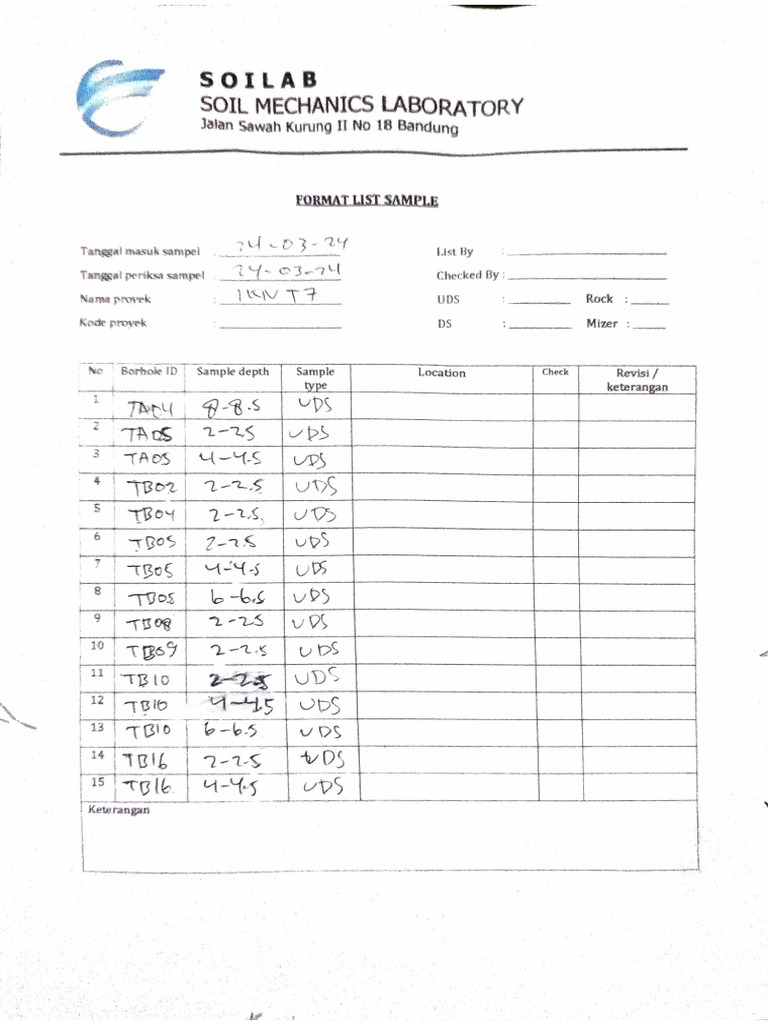 SOILAB
SOIL MECHANICS LABORATORY
Jalan Sawah Kurung II No 18 Bandung
FORMAT LIST SAMPLE
Tanggal masuk sampel : 24-03-24 List By :
Tanggal periksa sampel : 24-03-24 Checked By :
Nama proyek : IKN T7 UDS : Rock :
Kode proyek : DS : Mizer :
No Borhole ID Sample depth Sample type Location Check Revisi / keterangan
1 TA04 8-8.5 UDS
2 TA05 2-25 UDS
3 TA05 4-4.5 UDS
4 TB02 2-2.5 UDS
5 TB04 2-2.5 UDS
6 TB05 2-2.5 UDS
7 TB05 4-4.5 UDS
8 TB05 6-6.5 UDS
9 TB08 2-25 UDS
10 TB09 2-2.5 UDS
11 TB10 2-2.5 UDS
12 TB10 4-4.5 UDS
13 TB10 6-6.5 UDS
14 TB16 2-2.5 UDS
15 TB16 4-4.5 UDS
Keterangan